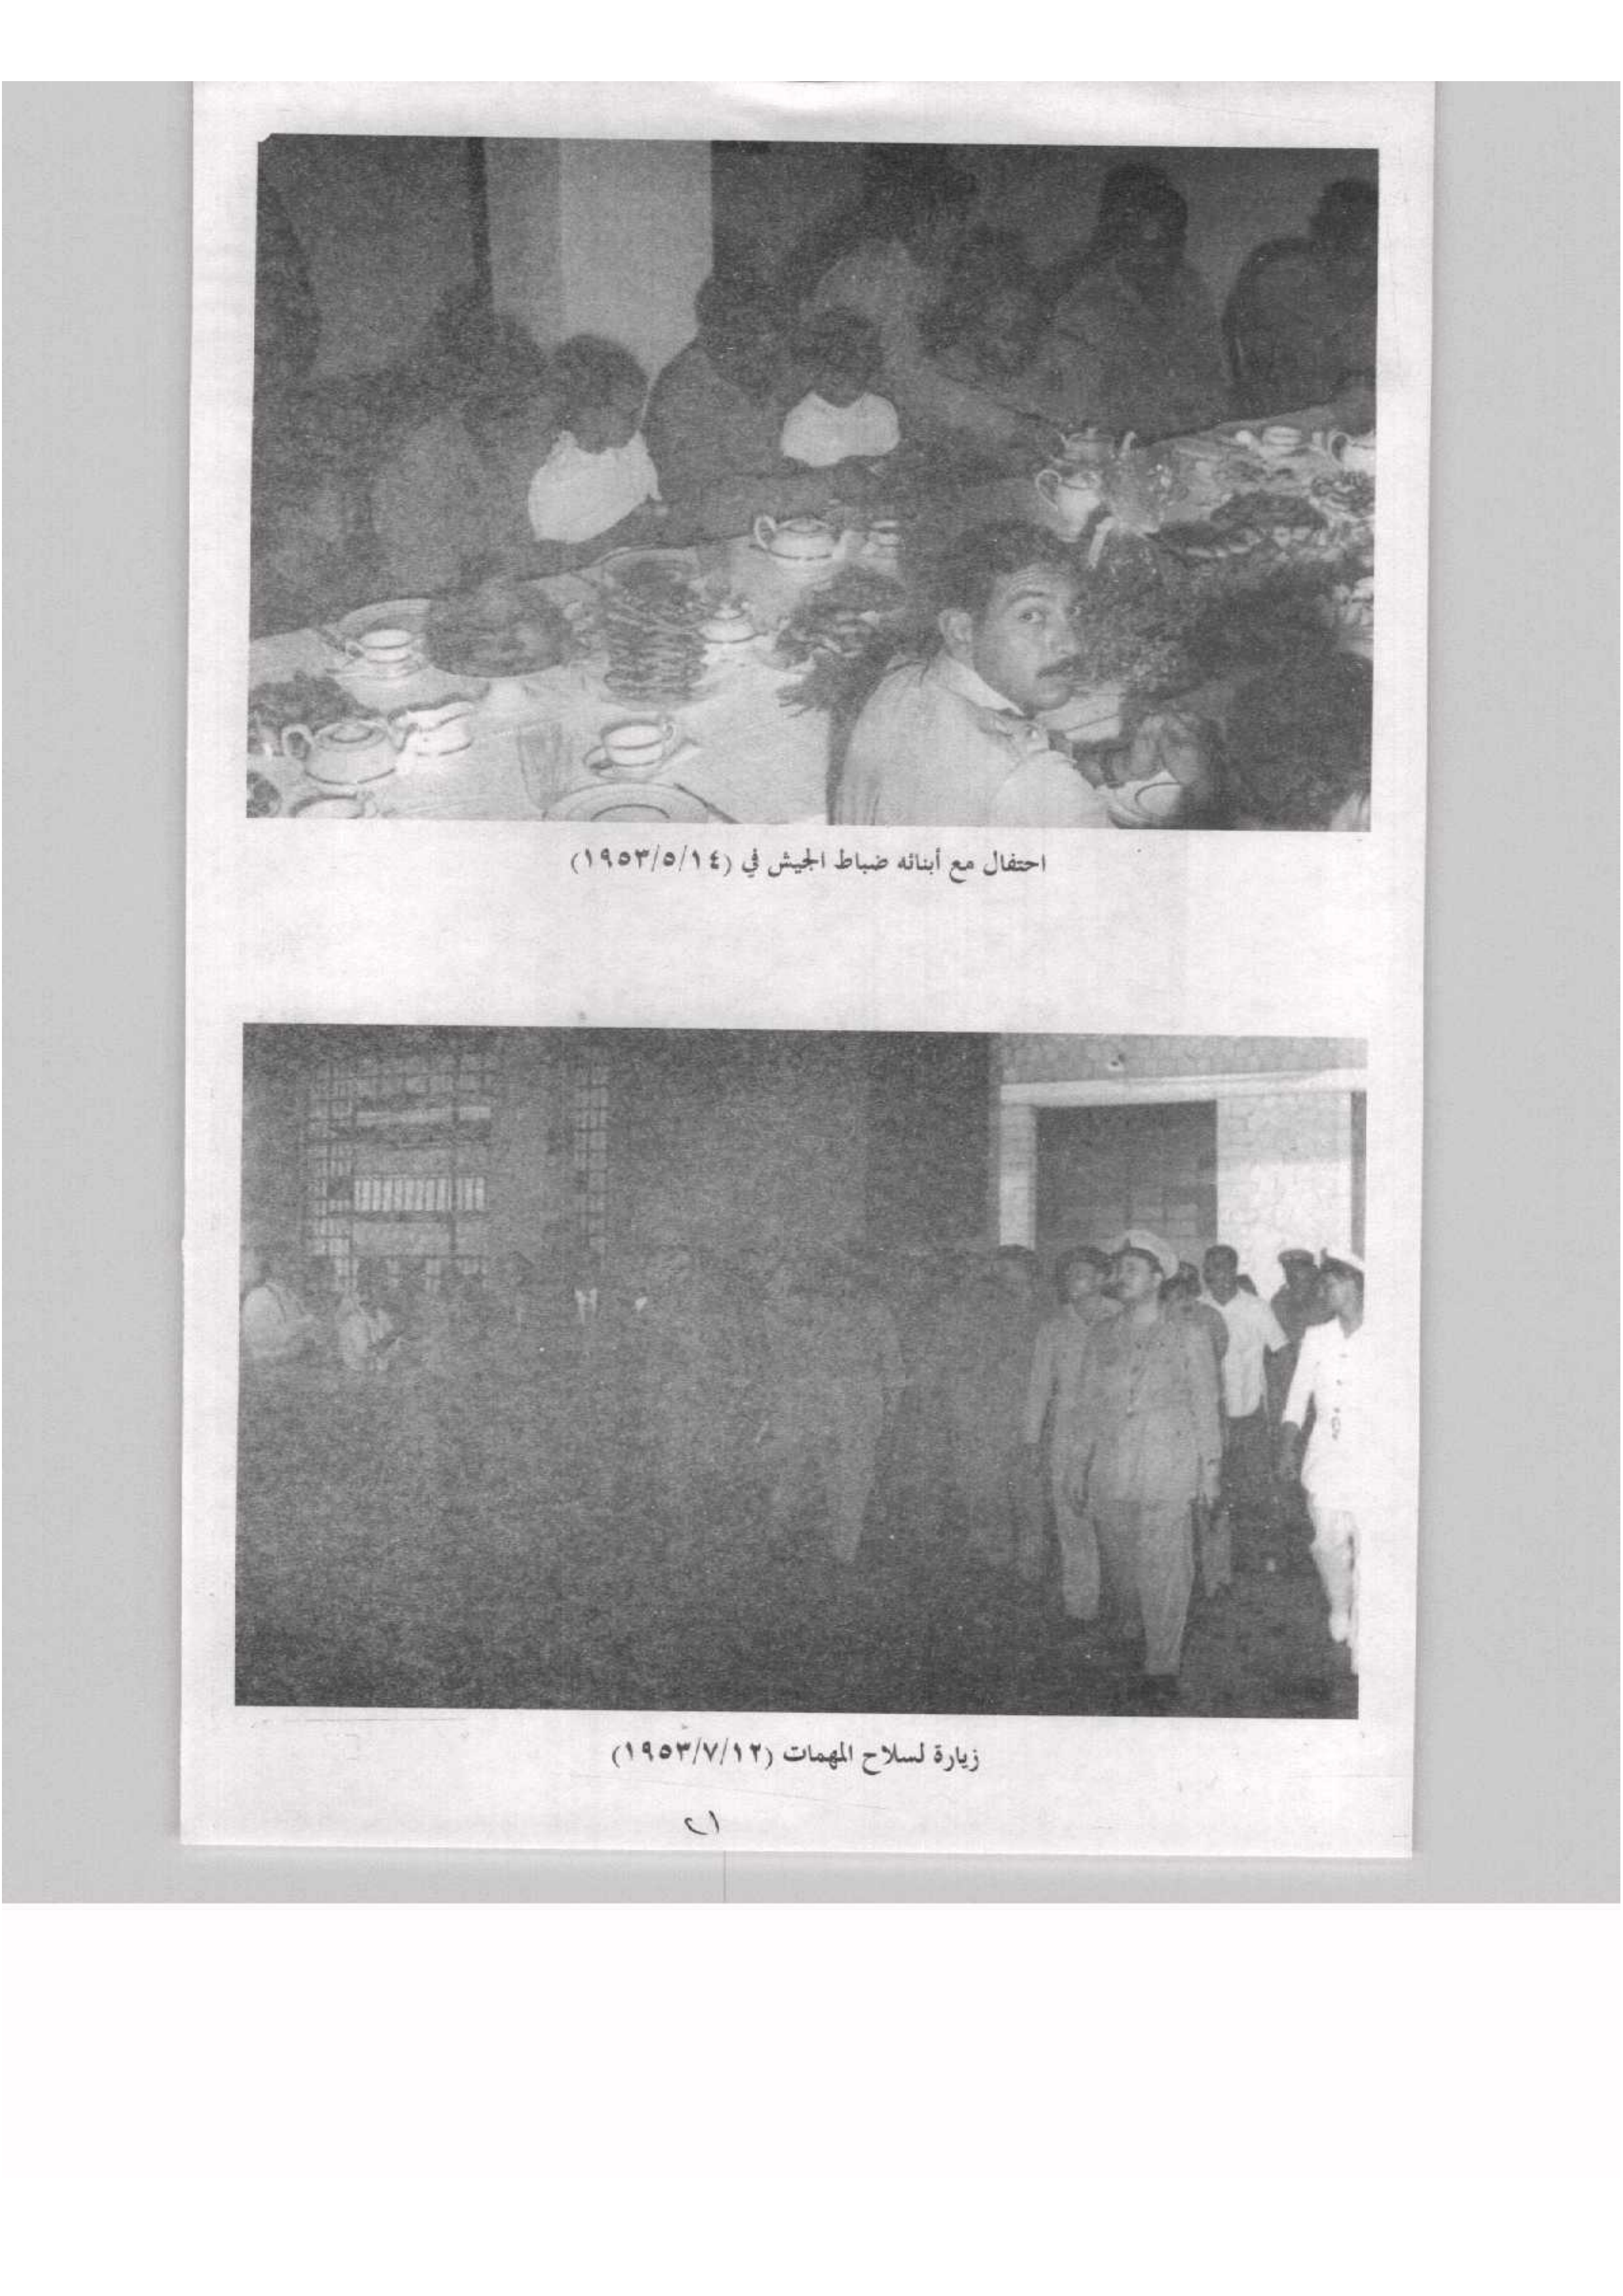 احتفال مع أبنائه ضباط الجيش في (١٩٥٣/٥/١٤)
زيارة لسلاح المهمات (١٩٥٣/٧/١٢)
٢١